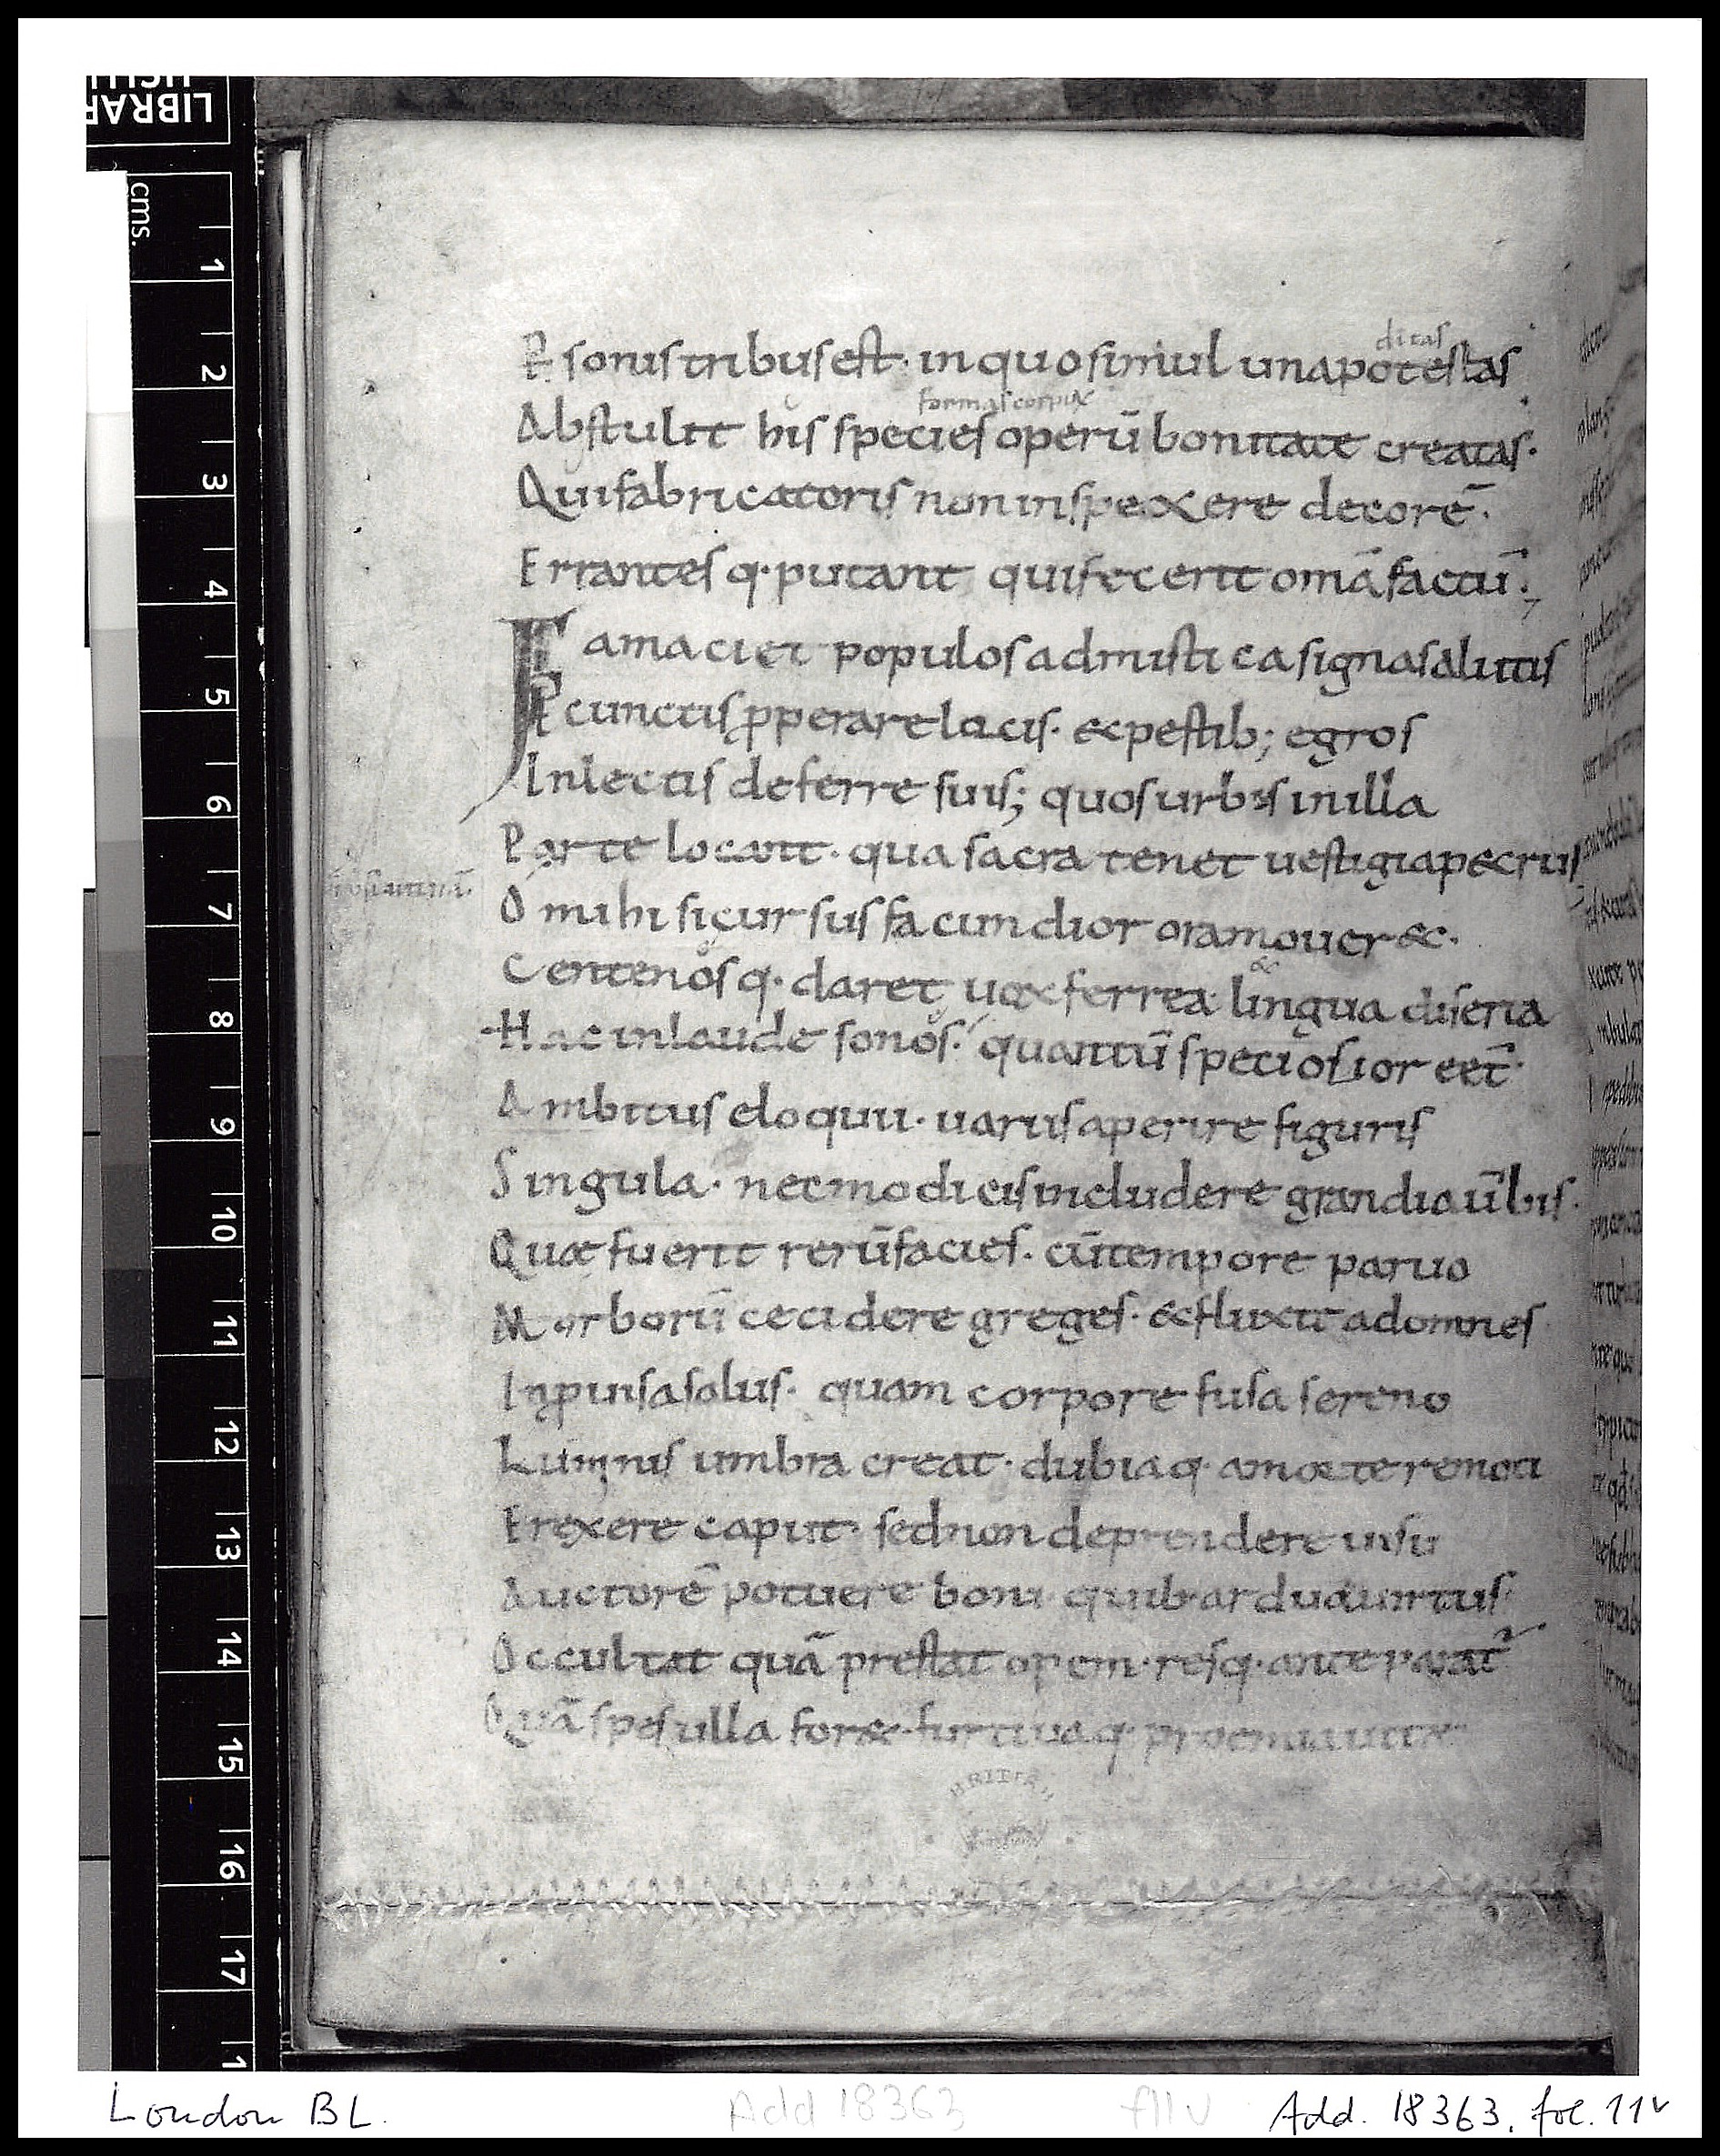 LIBRAR
cms.
1
2
3
4
5
6
7
8
9
10
11
12
13
14
15
16
17
1
ditas
P sonis tribus est· in quo simul una potestas
formas corporeas
Abstulit his species operū bonitate creatas·
Qui fabricatoris non inspexere decorē·
Errantes q· putant qui fecerit omā factū·
Fama ciet populos ad mistica signa salutis
A cunctis pperare locis· & pestib; egros
In lectis deferre suis; quos urbis in illa
Parte locant· qua sacra tenet uestigia petrus
O mihi si cursus facundior ora mouer&·
Centenosq· daret uox ferrea· lingua diserta
Hac in laude sonos· quantū speciosior eēt·
Ambitus eloquii· uariis aperire figuris
Singula· nec modicis includere grandia ūbis·
Quæ fuerit rerū facies· cū tempore paruo
Morborū cecidere greges· & fluxit ad omnes
Inpuisa salus· quam corpore fusa sereno
Luminis umbra creat· dubiaq· a morte remoti
Erexere caput· sed non deprendere uisu
Auctorē potuere boni quib· ardua uirtus
Occultat quā prestat opem· resq· ante parat
Quā spes ulla for&· furtiuaq· proemia uitæ
BRITISH
London BL.
Add 18363
f11v
Add. 18363, fol. 11v